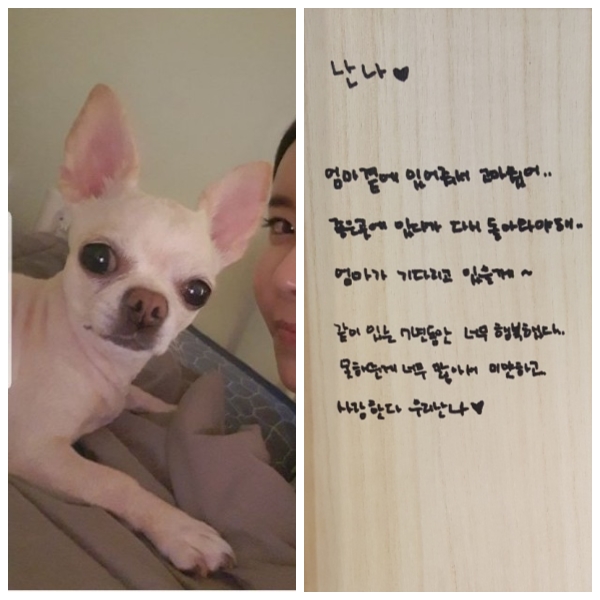 난나♥
엄마곁에 있어줘서 고마웠어..
좋은곳에 있다가 다시 돌아와야해..
엄마가 기다리고 있을게~
같이 있는 7년동안 너무 행복했다.
못해준게 너무 많아서 미안하고.
사랑한다 우리난나♥